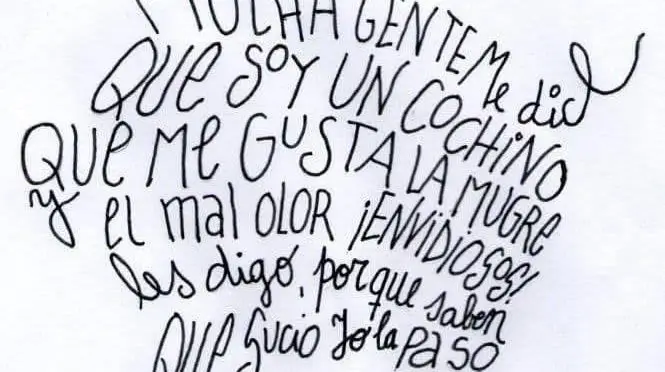 MUCHA GENTE Me dice
QUe SOY UN COCHiNO
QUe Me GUSTA LA MUGRe
y el mal OLOR ¡ENViDiOSOS!
les digo, porque saben
QUe Sucio Yo la PaSO